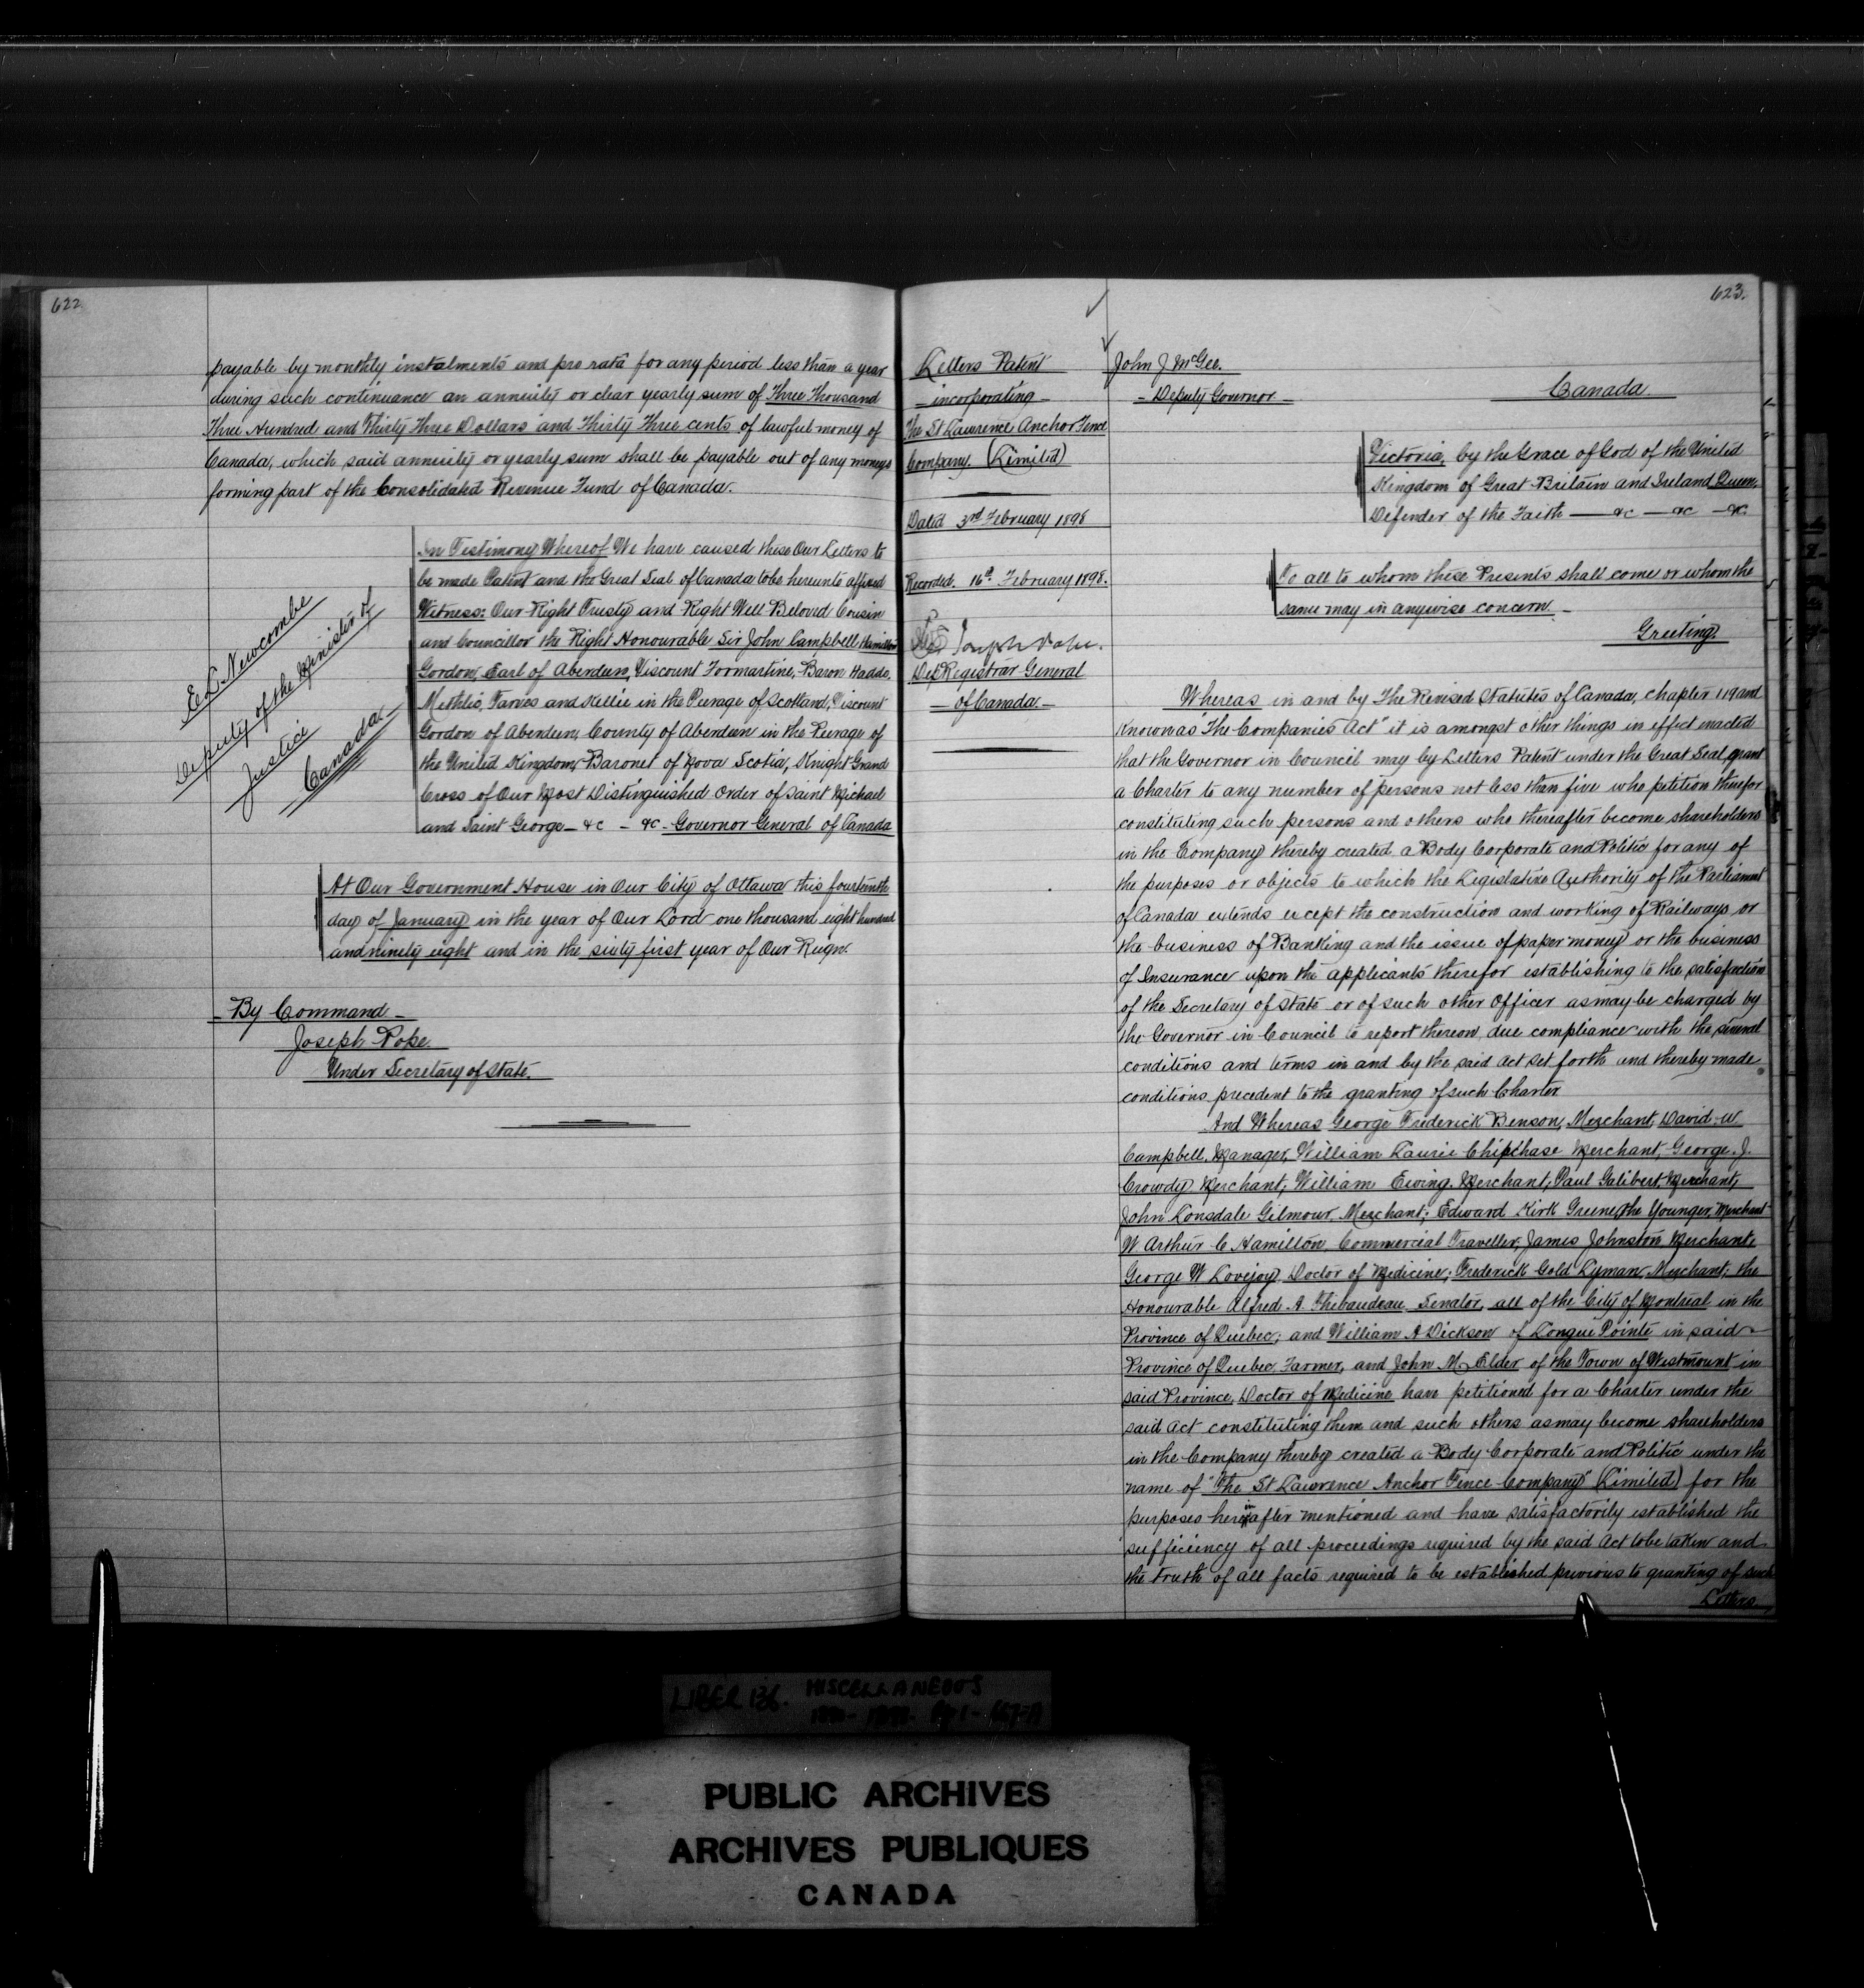 622
payable by monthly instalments and pro rata for any period less than a year
during such continuance an annuity or clear yearly sum of Three Thousand
Three Hundred and Thirty Three Dollars and Thirty Three cents of lawful money of
Canada, which said annuity or yearly sum shall be payable out of any moneys
forming part of the Consolidated Revenue Fund of Canada.
In Testimony Whereof We have caused these Our Letters to
be made Patent and the Great Seal of Canada to be hereunto affixed
Witness: Our Right Trusty and Right Well Beloved Cousin
and Councillor the Right Honourable Sir John Campbell Hamilton
Gordon, Earl of Aberdeen, Viscount Formartine, Baron Haddo,
Methlic, Tarves and Kellie in the Peerage of Scotland, Viscount
Gordon of Aberdeen, County of Aberdeen in the Peerage of
the United Kingdom, Baronet of Nova Scotia, Knight Grand
Cross of Our Most Distinguished Order of Saint Michael
and Saint George - &c - &c - Governor General of Canada
E L Newcombe
Deputy of the Minister of
Justice
Canada
At Our Government House in Our City of Ottawa this fourteenth
day of January in the year of Our Lord one thousand eight hundred
and ninety eight and in the sixty first year of Our Reign.
- By Command -
Joseph Pope
Under Secretary of State.
623.
Letters Patent
- incorporating -
The St Lawrence Anchor Fence
Company. (Limited)
Dated 3rd February 1898
Recorded. 16th February 1898.
Joseph Pope.
Dep Registrar General
- of Canada -
John J McGee.
- Deputy Governor -
Canada
Victoria, by the Grace of God of the United
Kingdom of Great Britain and Ireland Queen,
Defender of the Faith — &c — &c — &c.
To all to whom these Presents shall come or whom the
same may in anywise concern -
Greeting
Whereas in and by The Revised Statutes of Canada, chapter 119 and
known as "The Companies Act" it is amongst other things in effect enacted
that the Governor in Council may by Letters Patent under the Great Seal, grant
a Charter to any number of persons not less than five who petition therefor
constituting such persons and others who thereafter become shareholders
in the Company thereby created a Body Corporate and Politic for any of
the purposes or objects to which the Legislative Authority of the Parliament
of Canada extends except the construction and working of Railways or
the business of Banking and the issue of paper money or the business
of Insurance upon the applicants therefor establishing to the satisfaction
of the Secretary of State or of such other Officer as may be charged by
the Governor in Council to report thereon due compliance with the several
conditions and terms in and by the said Act set forth and thereby made
conditions precedent to the granting of such Charter
And Whereas George Frederick Benson, Merchant, David W
Campbell, Manager, William Laurie Chipchase Merchant, George J.
Crowdy Merchant; William Ewing Merchant; Paul Galibert, Merchant;
John Lonsdale Gilmour, Merchant; Edward Kirk Greene the Younger, Merchant
W Arthur C Hamilton, Commercial Traveller; James Johnston Merchant,
George W Lovejoy Doctor of Medicine; Frederick Gold Lyman, Merchant; the
Honourable Alfred A Thibaudeau Senator, all of the City of Montreal in the
Province of Quebec; and William A Dickson of Longue Pointe in said
Province of Quebec, Farmer, and John M. Elder of the Town of Westmount in
said Province, Doctor of Medicine have petitioned for a Charter under the
said Act constituting them and such others as may become shareholders
in the Company thereby created a Body Corporate and Politic under the
name of "The St Lawrence Anchor Fence Company" (Limited) for the
purposes hereinafter mentioned and have satisfactorily established the
sufficiency of all proceedings required by the said Act to be taken and
the truth of all facts required to be established previous to granting of such
Letters
LIBER 136. MISCELLANEOUS
PUBLIC ARCHIVES
ARCHIVES PUBLIQUES
CANADA